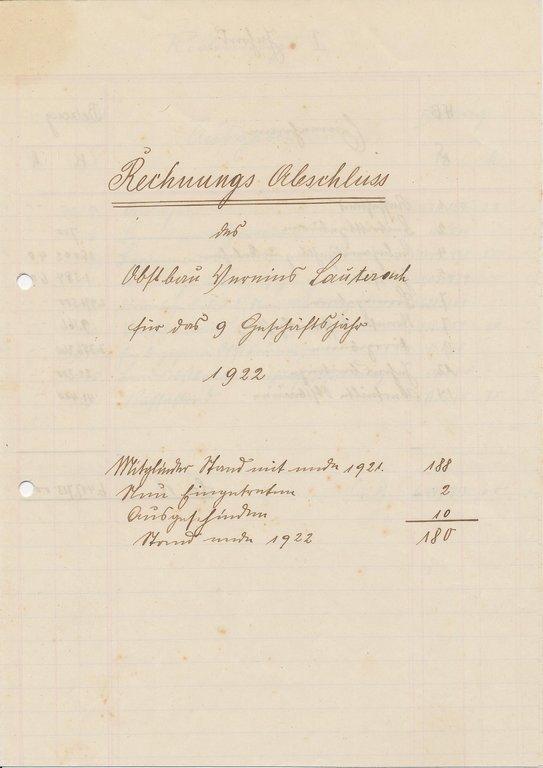 Rechnungs Abschluss
des
Obstbau Vereins Lauterach
für das 9 Geschäftsjahr
1922
Mitglieder Stand mit ende 1921. 188
Neu Eingetreten 2
Ausgeschieden 10
Stand ende 1922 180